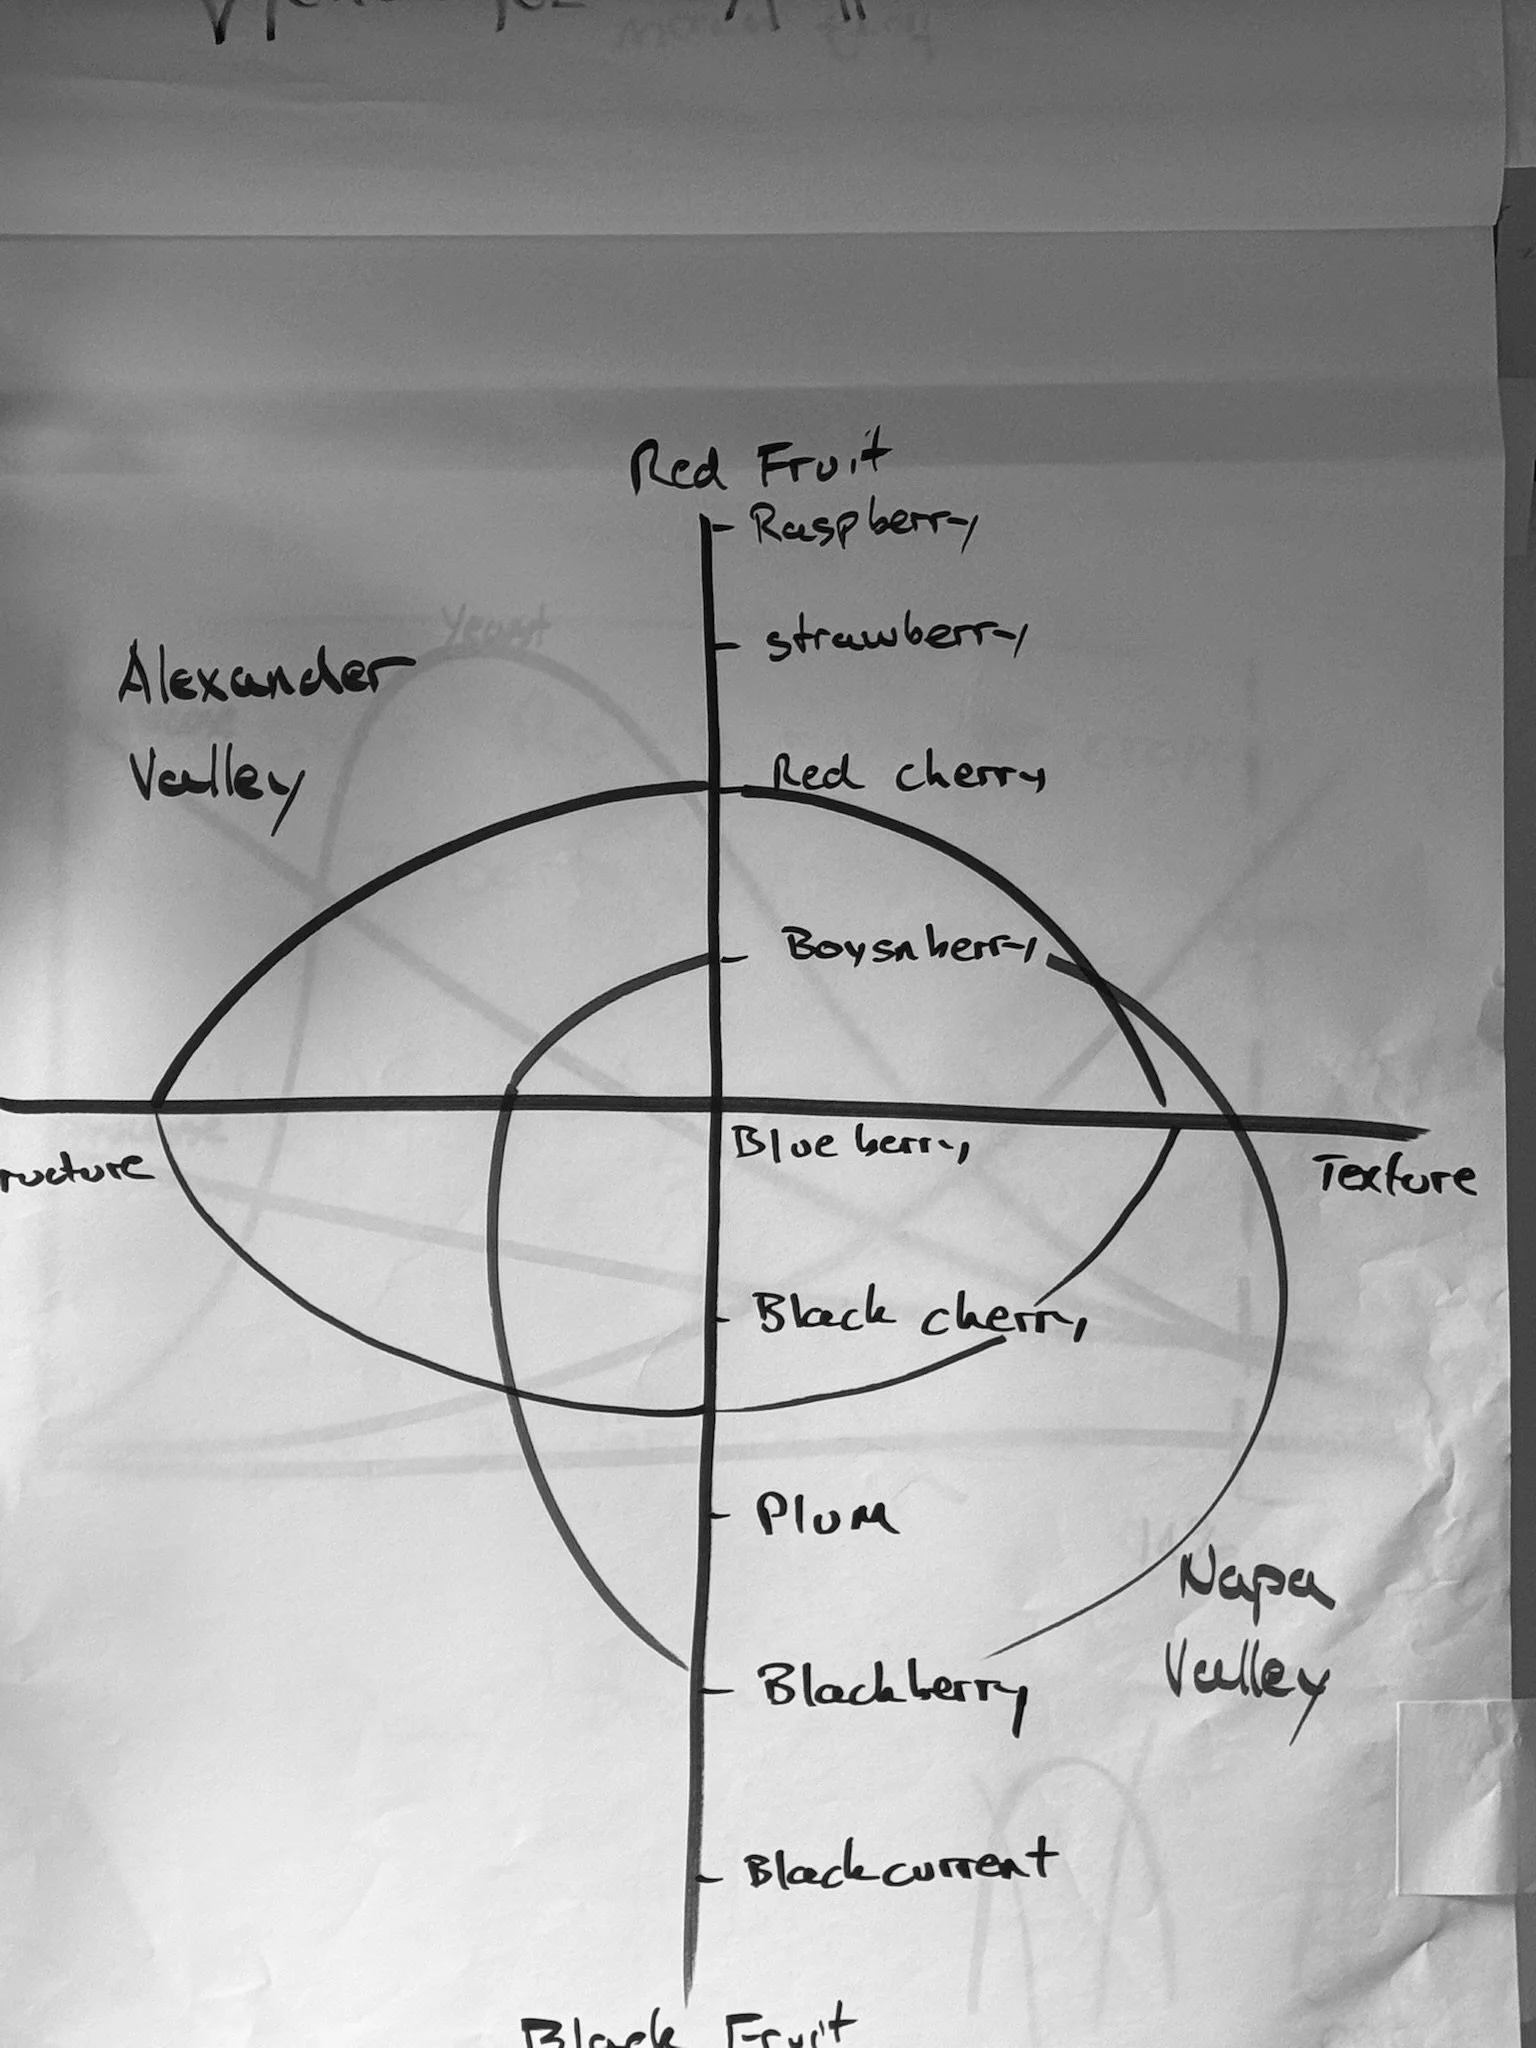 Red Fruit
Raspberry
strawberry
Yeast
Alexander
Valley
Red cherry
Boysnberry
Blueberry
ructure
Texture
Black cherry
Plum
Napa
Valley
Blackberry
Blackcurrent
Black Fruit